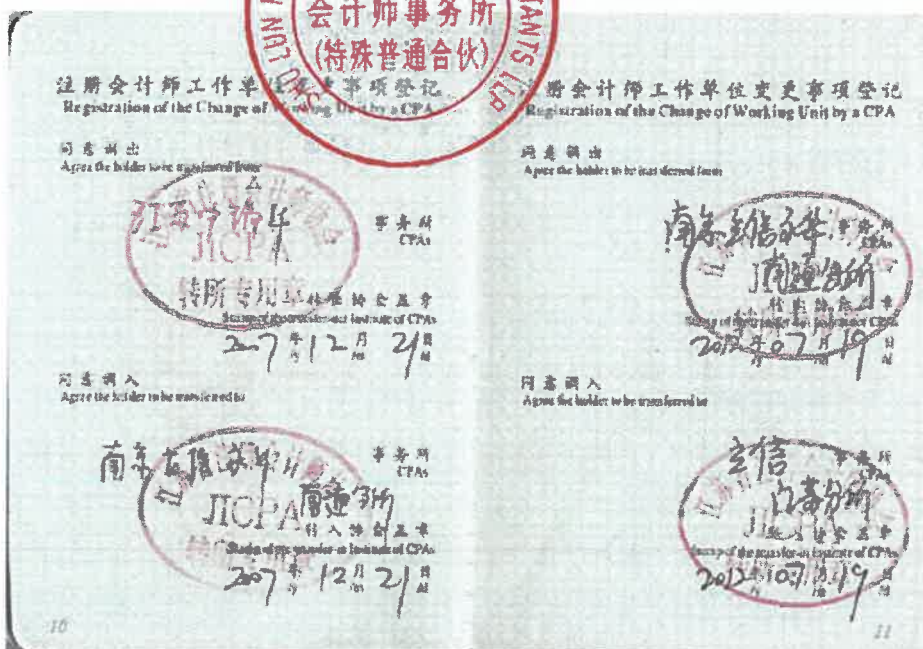 会计师事务所
(特殊普通合伙)
注册会计师工作单
事项登记
Registration of the Change of Working Unit by a CPA
同意调出
Agree the holder to be transferred from
事务所
CPAs
JICPA
转所专用章
转出协会盖章
Stamp of the transfer-out Institute of CPAs
2007年12月21日
同意调入
Agree the holder to be transferred to
南京立信永华
事务所
CPAs
南通分所
JICPA
转入协会盖章
Stamp of the transfer-in Institute of CPAs
2007年12月21日
10
册会计师工作单位变更事项登记
Registration of the Change of Working Unit by a CPA
同意调出
Agree the holder to be transferred from
南京立信永华
事务所
CPAs
南通分所
转出协会盖章
Stamp of the transfer-out Institute of CPAs
2012年07月19日
同意调入
Agree the holder to be transferred to
立信
事务所
JICPA
转入协会盖章
Stamp of the transfer-in Institute of CPAs
2012年07月19日
11